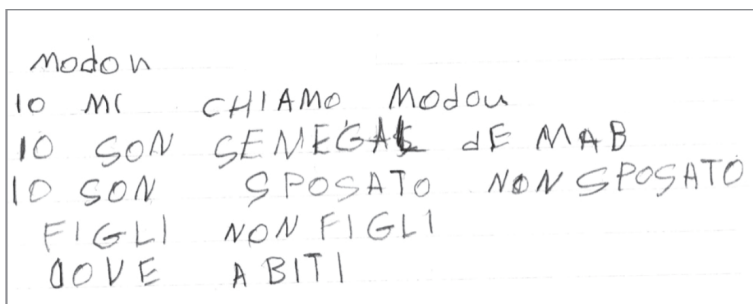 Modou
IO MI CHIAMO Modou
IO SON SENEGAL dE MAB
IO SON SPOSATO NON SPOSATO
FIGLI NON FIGLI
DOVE ABITI